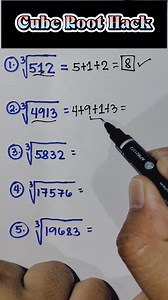 Cube Root Hack
1. ∛512 = 5+1+2 = 8 ✓
2. ∛4913 = 4+9+1+3 =
3. ∛5832 =
4. ∛17576 =
5. ∛19683 =